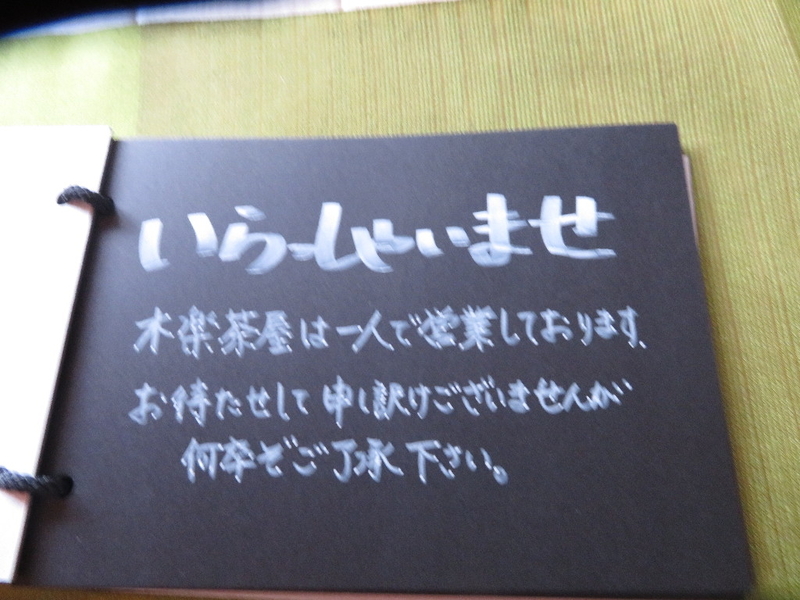 いらっしゃいませ
木楽茶屋は一人で営業しております、
お待たせして申し訳けございませんが
何卒ぞご了承下さい。